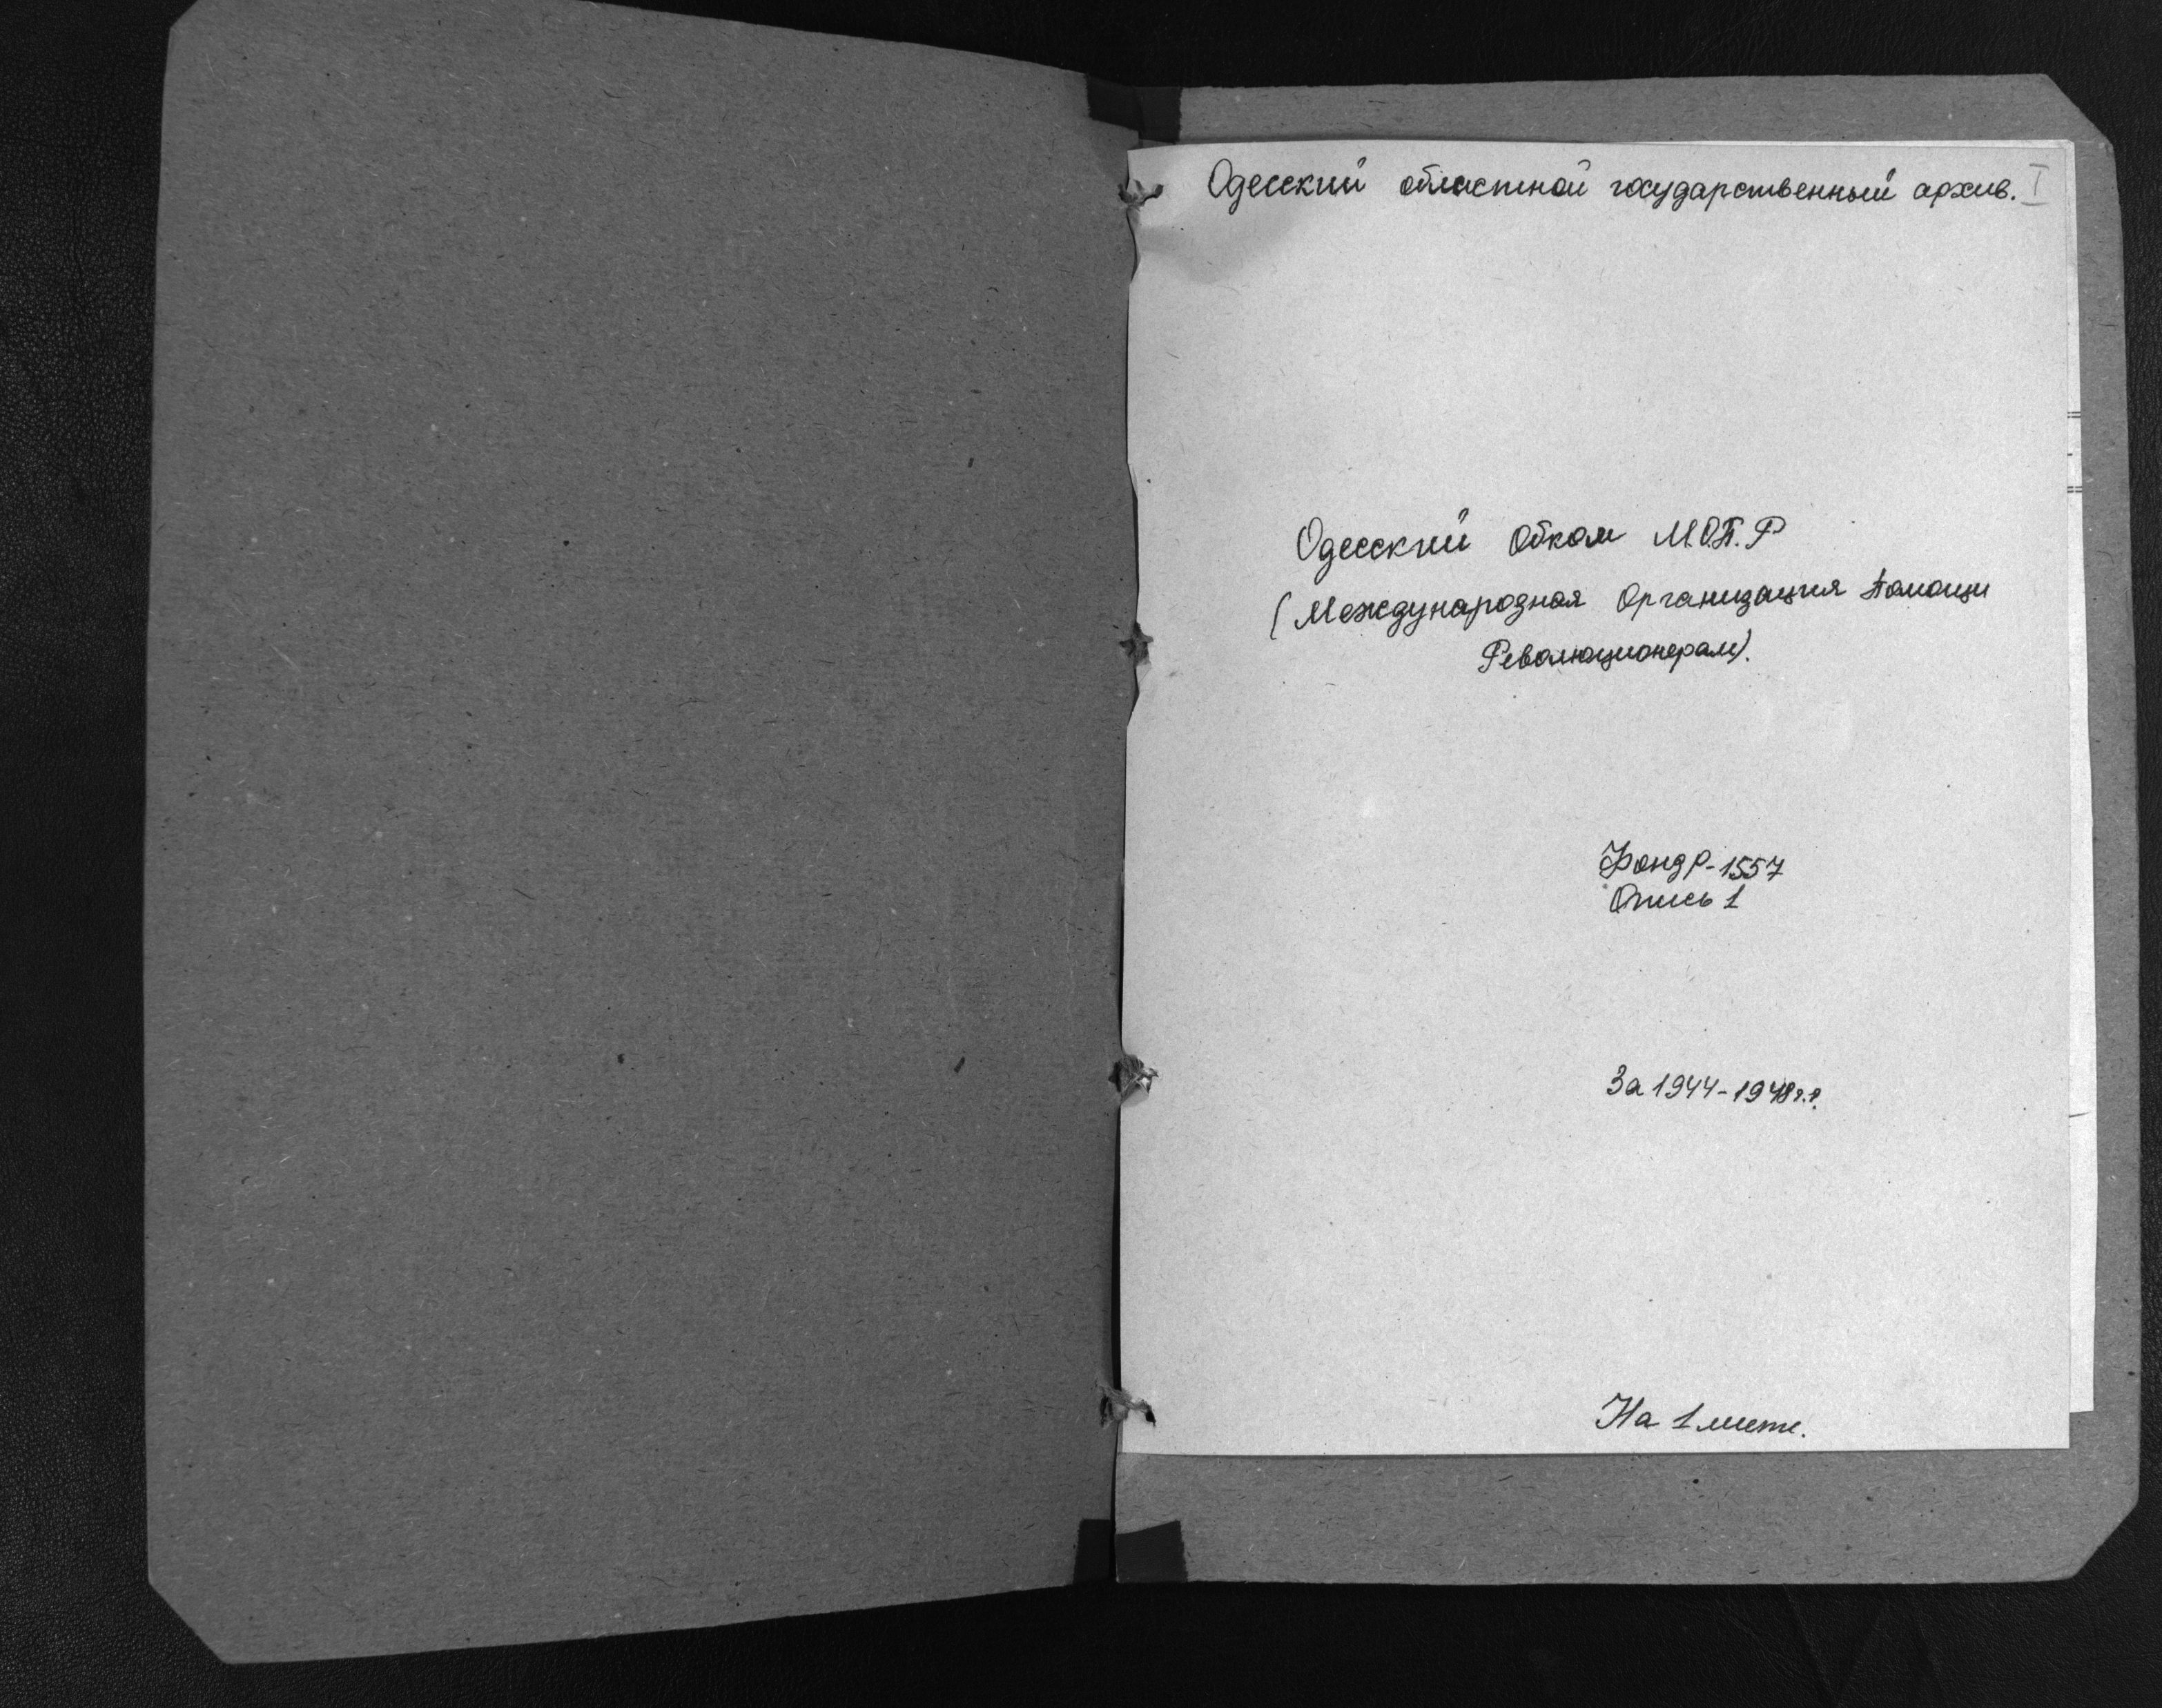 Одесский областной государственный архив. I
Одесский Обком М.О.П.Р
(Международная Организация Помощи
Революционерам).
Фонд Р-1557
Опись 1
За 1944-1948г.г.
На 1 листе.